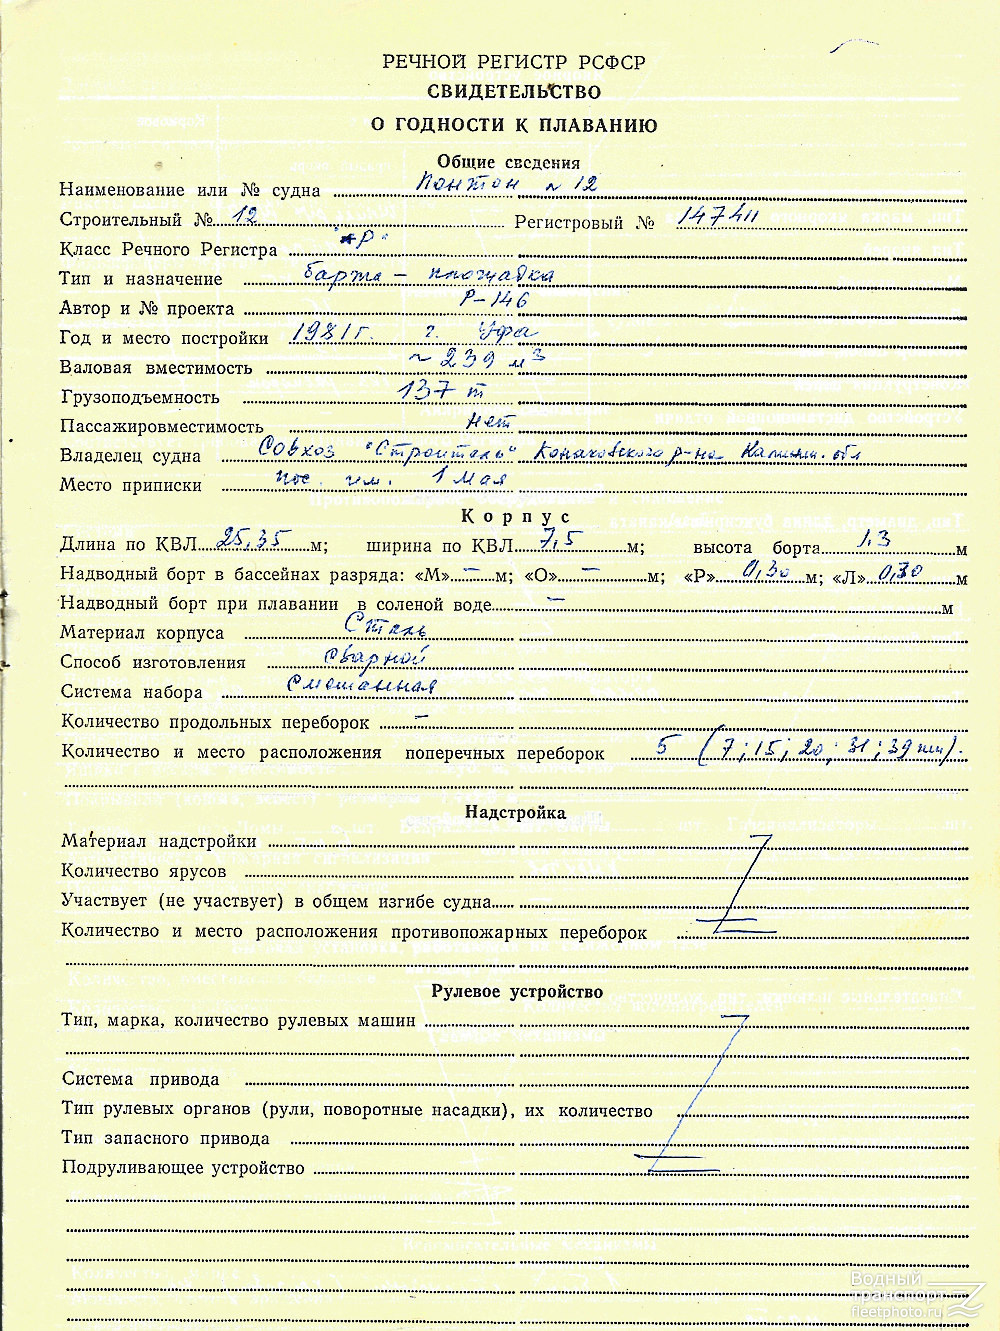 РЕЧНОЙ РЕГИСТР РСФСР
СВИДЕТЕЛЬСТВО
О ГОДНОСТИ К ПЛАВАНИЮ
Общие сведения
Наименование или № судна Понтон № 12
Строительный № 12 Регистровый № 147411
Класс Речного Регистра "✶Р"
Тип и назначение баржа – площадка
Автор и № проекта Р-146
Год и место постройки 1981 г. г. Уфа
Валовая вместимость ~ 239 м3
Грузоподъемность 137 т
Пассажировместимость нет
Владелец судна Совхоз "Строитель" Конаковского р-на Калинин. обл
Место приписки пос. им. 1 Мая
Корпус
Длина по КВЛ 25,35 м; ширина по КВЛ 7,5 м; высота борта 1,3 м
Надводный борт в бассейнах разряда: «М» — м; «О» — м; «Р» 0,30 м; «Л» 0,30 м
Надводный борт при плавании в соленой воде — м
Материал корпуса Сталь
Способ изготовления Сварной
Система набора Смешанная
Количество продольных переборок —
Количество и место расположения поперечных переборок 5 (7; 15; 20; 31; 39 шп).
Надстройка
Материал надстройки
Количество ярусов
Участвует (не участвует) в общем изгибе судна
Количество и место расположения противопожарных переборок
Рулевое устройство
Тип, марка, количество рулевых машин
Система привода
Тип рулевых органов (рули, поворотные насадки), их количество
Тип запасного привода
Подруливающее устройство
Водный
транспорт
fleetphoto.ru